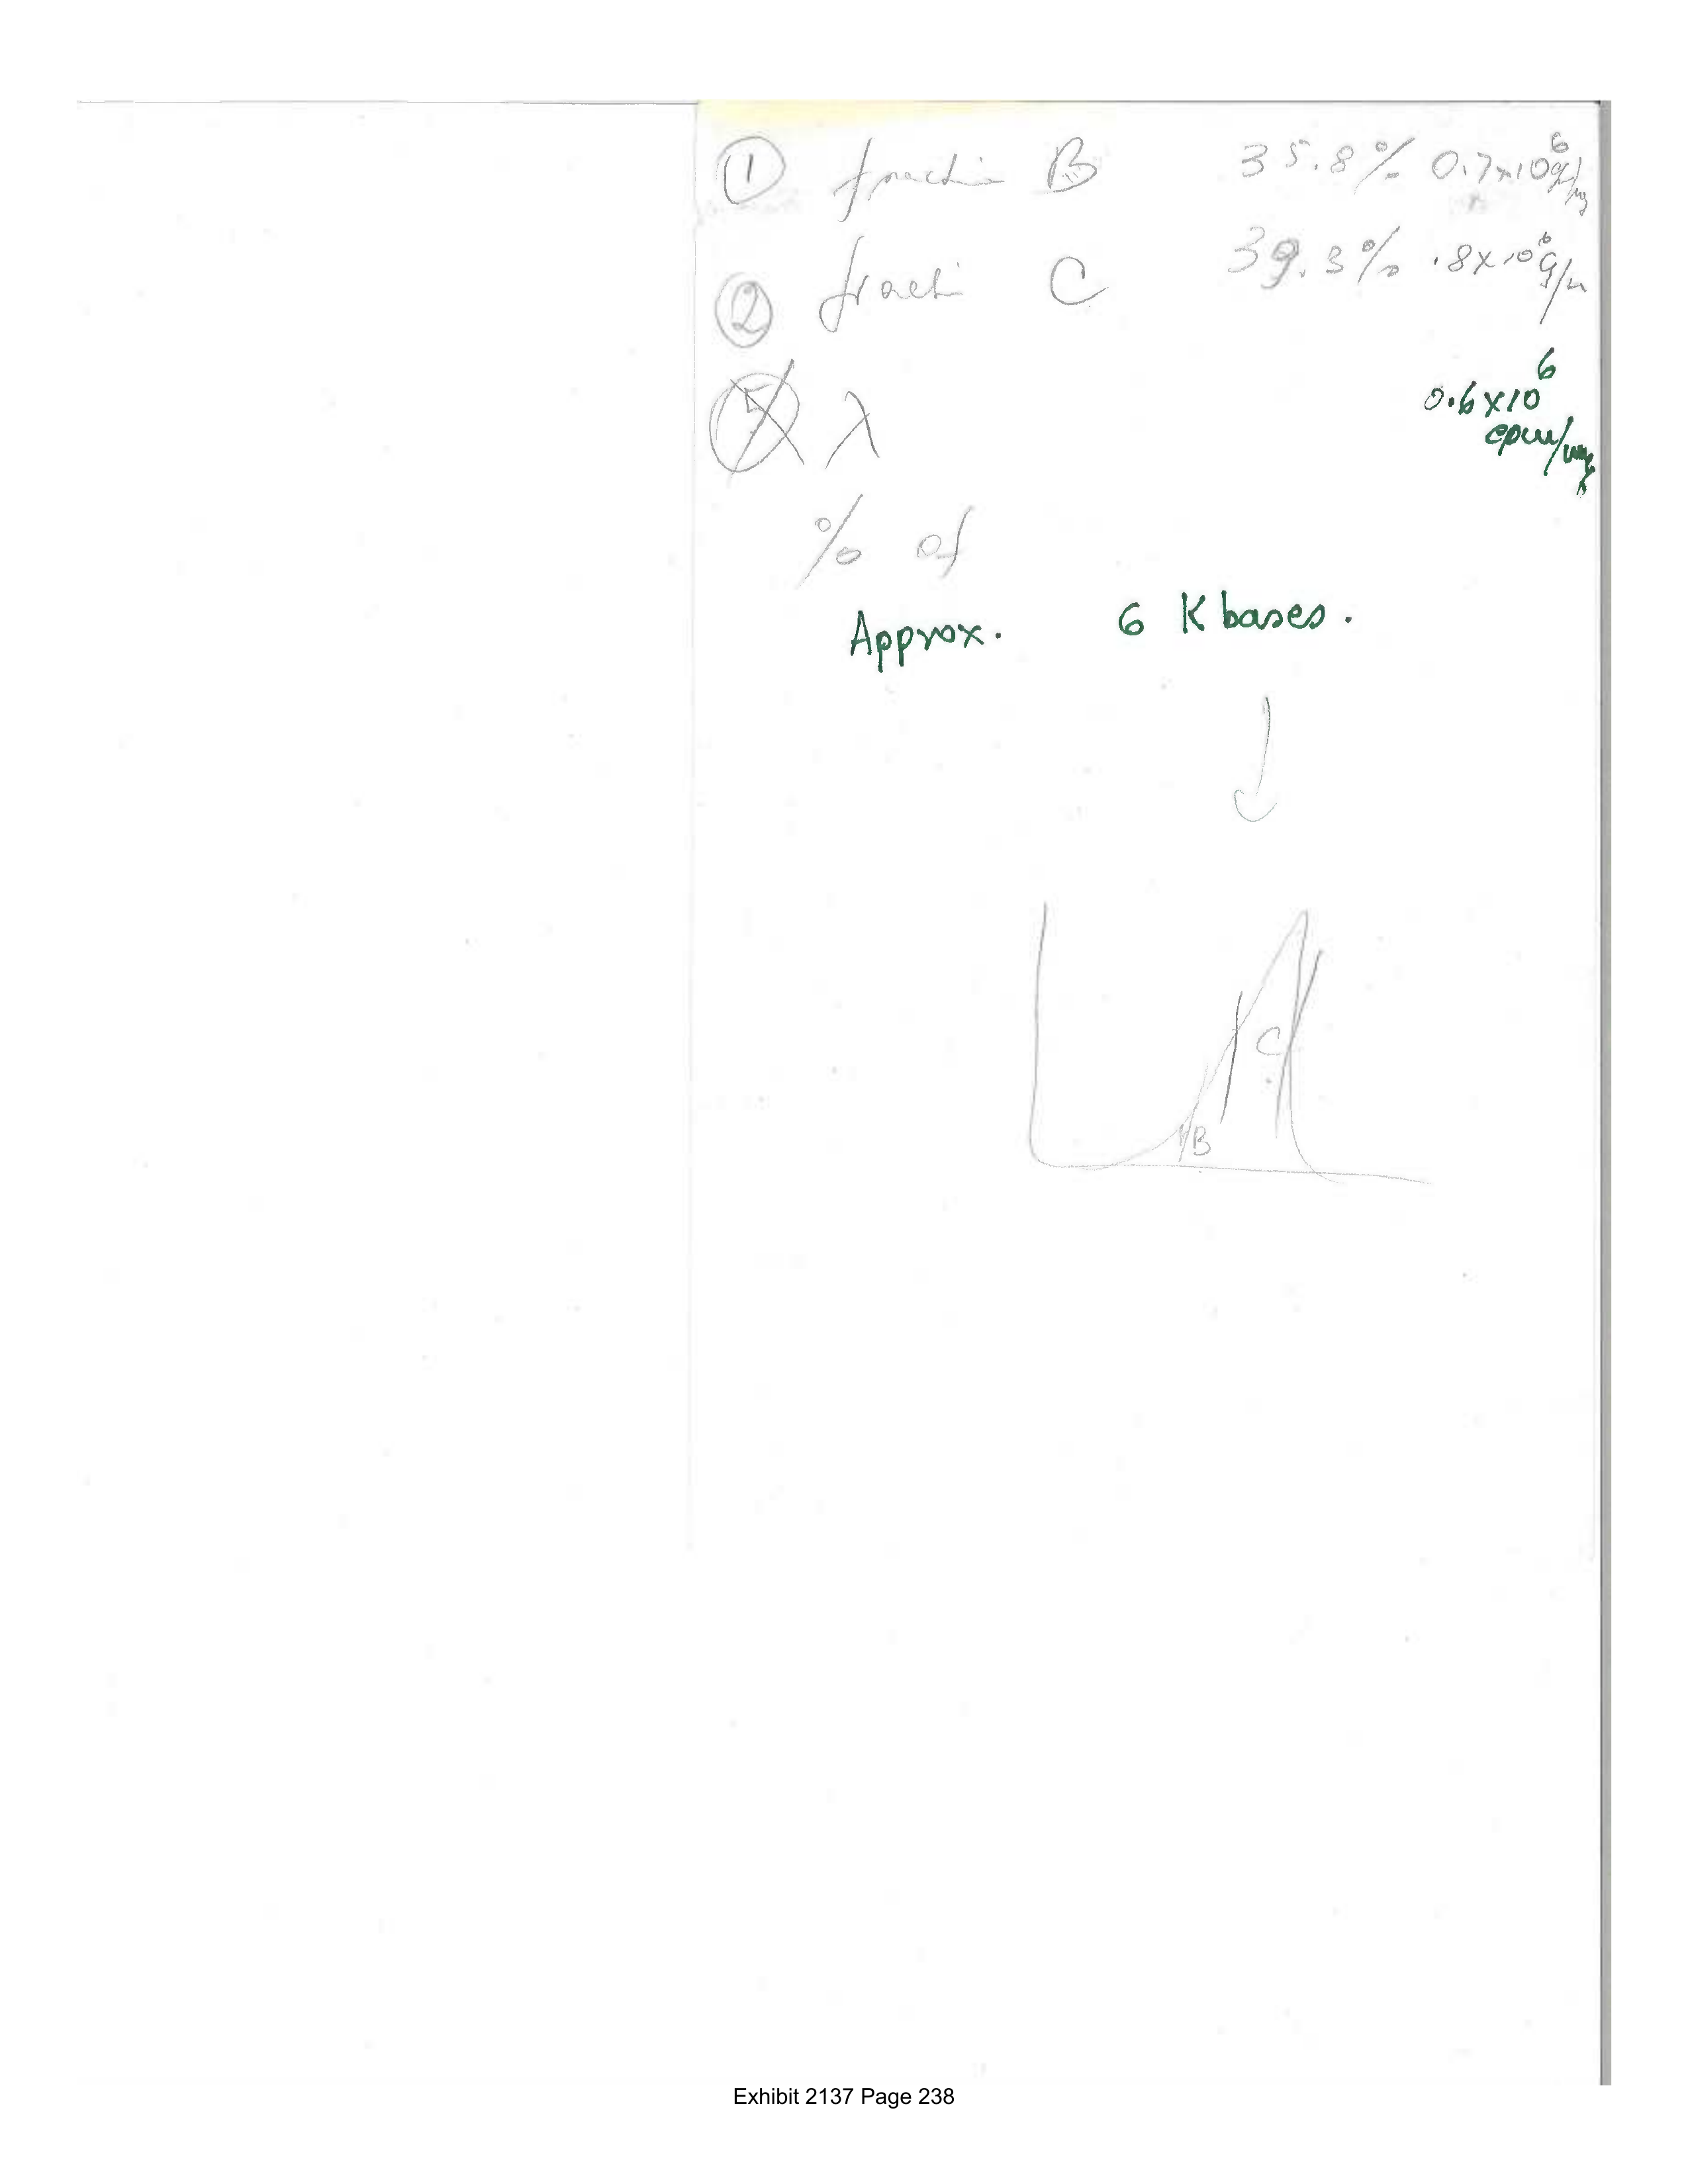 ① fraction B 35.8% 0.7x10⁶
② fracti C 39.3% .8x10⁶
5 λ 0.6x10⁶
cpm/ug
% of
Approx. 6 K bases.
C
B
Exhibit 2137 Page 238